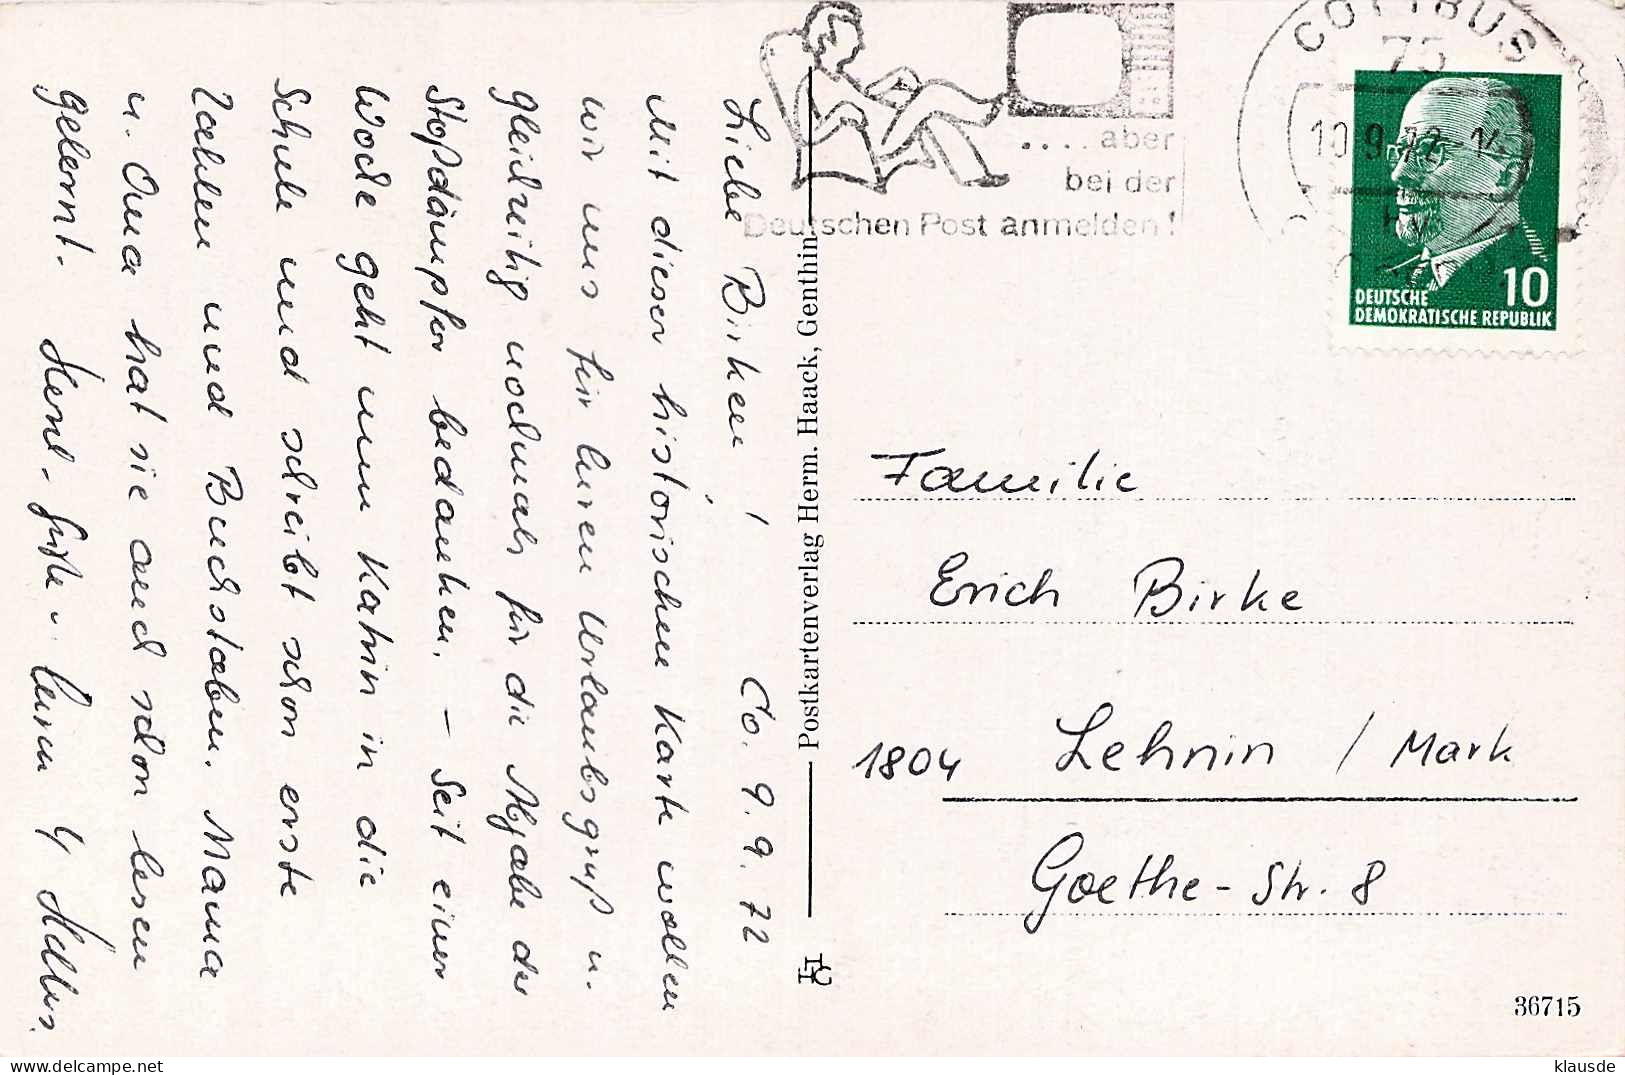 Liebe Birken !
Cb. 9.9.72
Mit dieser historischen Karte wollen
wir uns für Euren Urlaubsgruß u.
gleichzeitig nochmals für die Abgabe der
Stoßdämpfer bedanken. – Seit einer
Woche geht nun Katrin in die
Schule und schreibt schon erste
Zahlen und Buchstaben. Mama
u. Oma hat sie auch schon lesen
gelernt. Herzl. Grüße v. Euren 4
Postkartenverlag Herm. Haack, Genthin
.... aber
bei der
Deutschen Post anmelden!
COTTBUS
75
10.9.72-14
10
DEUTSCHE
DEMOKRATISCHE REPUBLIK
Familie
Erich Birke
1804 Lehnin / Mark
Goethe-Str. 8
36715
klausde